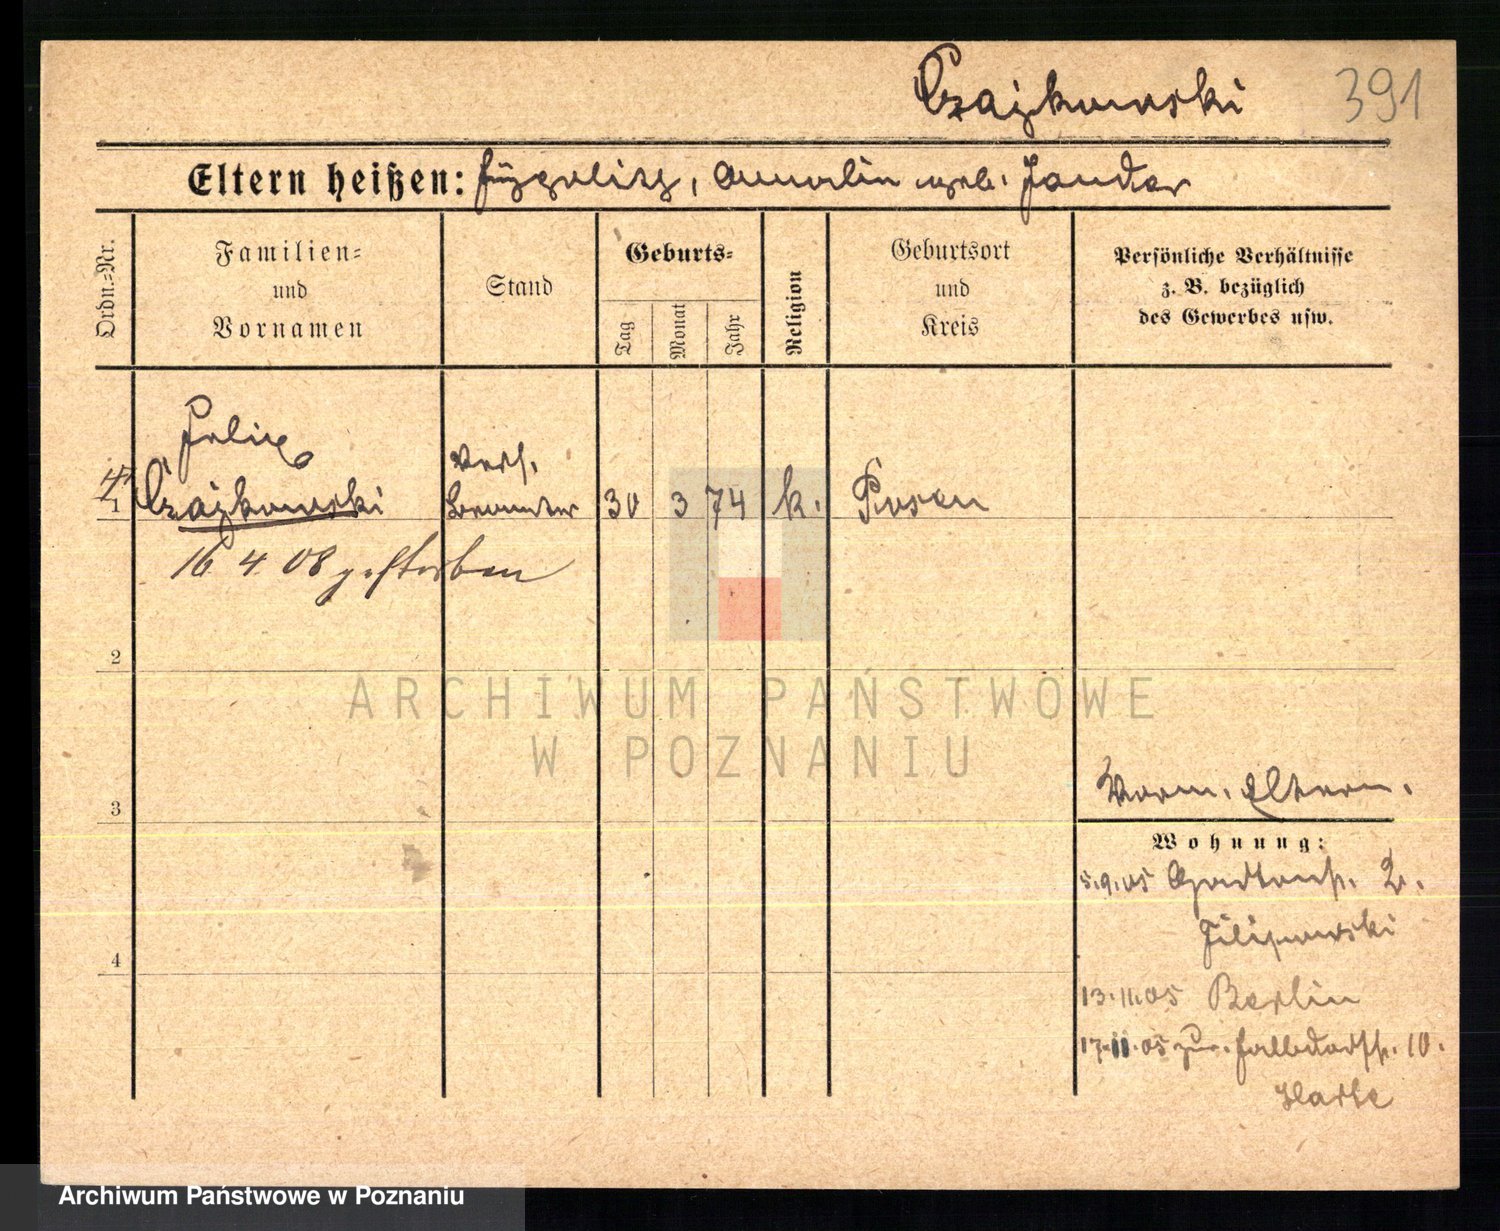 Czajkowski 391
Eltern heißen: Hyppolit, Aurelia geb. Jander
Ordn.=Nr.
Familien=
und
Vornamen
Stand
Geburts=
Tag
Monat
Jahr
Religion
Geburtsort
und
Kreis
Persönliche Verhältnisse
z. B. bezüglich
des Gewerbes usw.
Felix
1 Czajkowski
verh.
Beamter 30 3 74 k. Posen
16 4 08 gestorben
2
ARCHIWUM PAŃSTWOWE
W POZNANIU
3
Vorm. Eltern.
Wohnung:
5.9.05 Gartenstr. 2.
Filipowski
13.11.05 Berlin
4
17.11.05 zur. Halbdorfstr. 10.
Archiwum Państwowe w Poznaniu